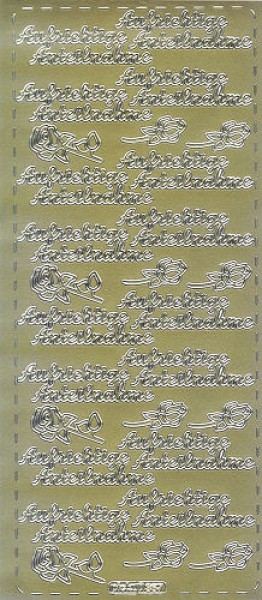 Aufrichtige
Anteilnahme
Aufrichtige
Anteilnahme
Aufrichtige
Anteilnahme
Aufrichtige
Anteilnahme
Aufrichtige
Anteilnahme
Aufrichtige
Anteilnahme
Aufrichtige
Anteilnahme
Aufrichtige
Anteilnahme
Aufrichtige
Anteilnahme
Aufrichtige
Anteilnahme
Aufrichtige
Anteilnahme
Aufrichtige
Anteilnahme
Aufrichtige
Anteilnahme
Aufrichtige
Anteilnahme
Aufrichtige
Anteilnahme
Aufrichtige
Anteilnahme